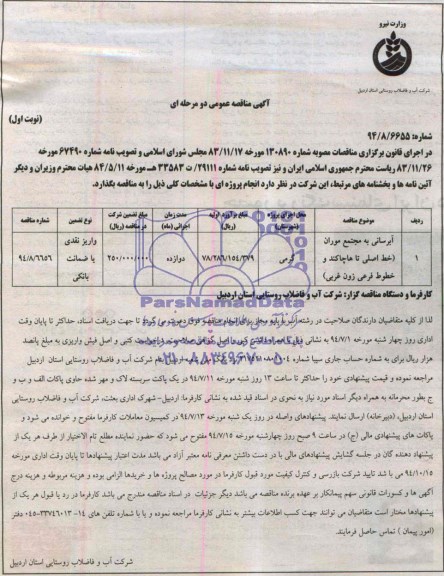 وزارت نیرو
شرکت آب و فاضلاب روستایی استان اردبیل
آگهی مناقصه عمومی دو مرحله ای
(نوبت اول)
شماره: ۹۴/۸/۶۶۵۵
در اجرای قانون برگزاری مناقصات مصوبه شماره ۱۳۰۸۹۰ مورخه ۸۳/۱۱/۱۷ مجلس شورای اسلامی و تصویب نامه شماره ۶۷۴۹۰ مورخه
۸۳/۱۱/۲۶ ریاست محترم جمهوری اسلامی ایران و نیز تصویب نامه شماره ۲۹۱۱۱/ ت ۳۳۵۸۳ هـ مورخه ۸۴/۵/۱۱ هیات محترم وزیران و دیگر
آئین نامه ها و بخشنامه های مرتبط، این شرکت در نظر دارد انجام پروژه ای با مشخصات کلی ذیل را به مناقصه بگذارد.
ردیف موضوع مناقصه محل اجرای پروژه (شهرستان) مبلغ برآورد اولیه (ریال) مدت زمان اجرائی (ماه) مبلغ تضمین شرکت در مناقصه (ریال) نوع تضمین شماره مناقصه
۱ آبرسانی به مجتمع موران (خط اصلی تا هاچاکند و خطوط فرعی زون غربی) گرمی ۷۸/۲۸۶/۱۵۴/۳۷۹ دوازده ۲۵۰/۰۰۰/۰۰۰ واریز نقدی یا ضمانت بانکی ۹۴/۸/۶۶۵۶
کارفرما و دستگاه مناقصه گزار: شرکت آب و فاضلاب روستایی استان اردبیل
لذا از کلیه متقاضیان دارندگان صلاحیت در رشته آب با پایه مجاز برای انجام مناقصه فوق دعوت می گردد تا جهت دریافت اسناد، حداکثر تا پایان وقت
اداری روز چهار شنبه مورخه ۹۴/۷/۱ به نشانی ذیل همراه داشتن کپی و اصل گواهی صلاحیت و درخواست کتبی و اصل فیش واریزی به مبلغ پانصد
هزار ریال برای به شماره حساب جاری سیبا شماره بنام شرکت آب و فاضلاب روستایی استان اردبیل
مراجعه نموده و قیمت پیشنهادی خود را حداکثر تا ساعت ۱۳ روز شنبه مورخه ۹۴/۷/۱۱ در یک پاکت سربسته لاک و مهر شده حاوی پاکات الف و ب و
ج بطور محرمانه به همراه دیگر اسناد مورد نیاز به نحوی در اسناد قید شده به نشانی کارفرما: اردبیل- شهرک اداری بعثت، شرکت آب و فاضلاب روستایی
استان اردبیل، (دبیرخانه) ارسال نمایند. پیشنهادهای واصله در روز یک شنبه مورخه ۹۴/۷/۱۲ در کمیسیون معاملات کارفرما مفتوح و خوانده می شود و
پاکات های پیشنهادی مالی (ج) در ساعت ۹ صبح روز چهارشنبه مورخه ۹۴/۷/۱۵ مفتوح می شود که حضور نماینده مطلع تام الاختیار از طرف هر یک از
پیشنهاد دهنده گان در جلسه گشایش پیشنهادهای مالی با در دست داشتن معرفی نامه معتبر آزاد می باشد مدت اعتبار پیشنهادها تا پایان وقت اداری مورخه
۹۴/۱۰/۱۵ می باشد تایید شرکت بازرسی و کنترل کیفیت مورد قبول کارفرما در مورد مصالح پروژه ها و خریدها الزامی بوده و هزینه مربوطه و هزینه درج
آگهی ها و کسورات قانونی سهم پیمانکار بر عهده برنده مناقصه می باشد دیگر جزئیات در اسناد مناقصه مندرج می باشد کارفرما در رد یا قبول هر یک از
پیشنهادها مختار است متقاضیان می توانند جهت کسب اطلاعات بیشتر به نشانی کارفرما مراجعه نموده و یا با شماره تلفن های ۱۴-۳۳۷۴۶۰۱۳-۰۴۵
(امور پیمان) تماس حاصل فرمایند.
شرکت آب و فاضلاب روستایی استان اردبیل
ParsNamadData